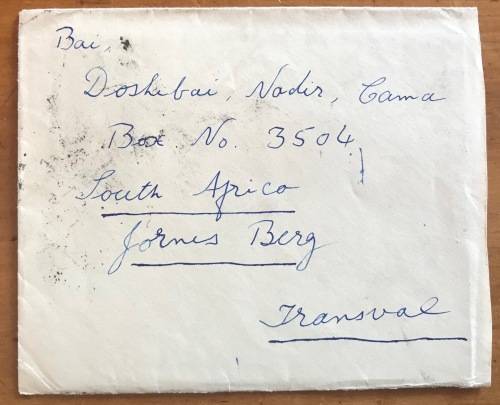 Bai,
Doshibai, Nadir, Cama
Box No. 3504
South Africa
Jornis Berg
Transval